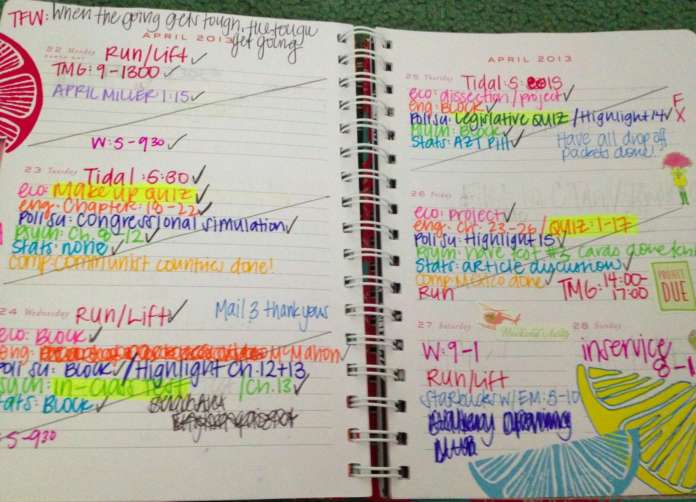 TFW: When the going gets tough, the tough get going
APRIL 2013
22 Monday
Run/Lift
TMG: 9-1300
APRIL MILLER 1:15
W: 5-930
23 Tuesday
Tidal: 5:30
eco: Make up QUIZ
eng: Chapter: 18-22
Poli su: congressional simulation
Psych: Ch. 8-12
Stats: none
comp: communist countries done!
24 Wednesday
Run/Lift
Mail 3 thank yous
eco: Block
eng: McMahon
Poli su: Block / Highlight Ch. 12+13
Psych: in-class test / Ch. 13
Stats: Block
5-930
APRIL 2013
25 Thursday
Tidal: 5
eco: dissection/project
eng: Block
Poli su: Legislative QUIZ / Highlight 14
Psych: Block
Stats: AZT Piff
Have all drop off packets done!
F
X
26 Friday
eco: Project
eng: Ch. 23-26 / QUIZ: 1-17
Poli su: Highlight 15
Psych: Have test #3 cards done
Stats: article discussion
comp: Mexico done
Run
TMG: 14:00-17:00
PROJECT DUE
27 Saturday
W: 9-1
Run/Lift
Starbucks w/ EM: 5-10
28 Sunday
inservice
8-1